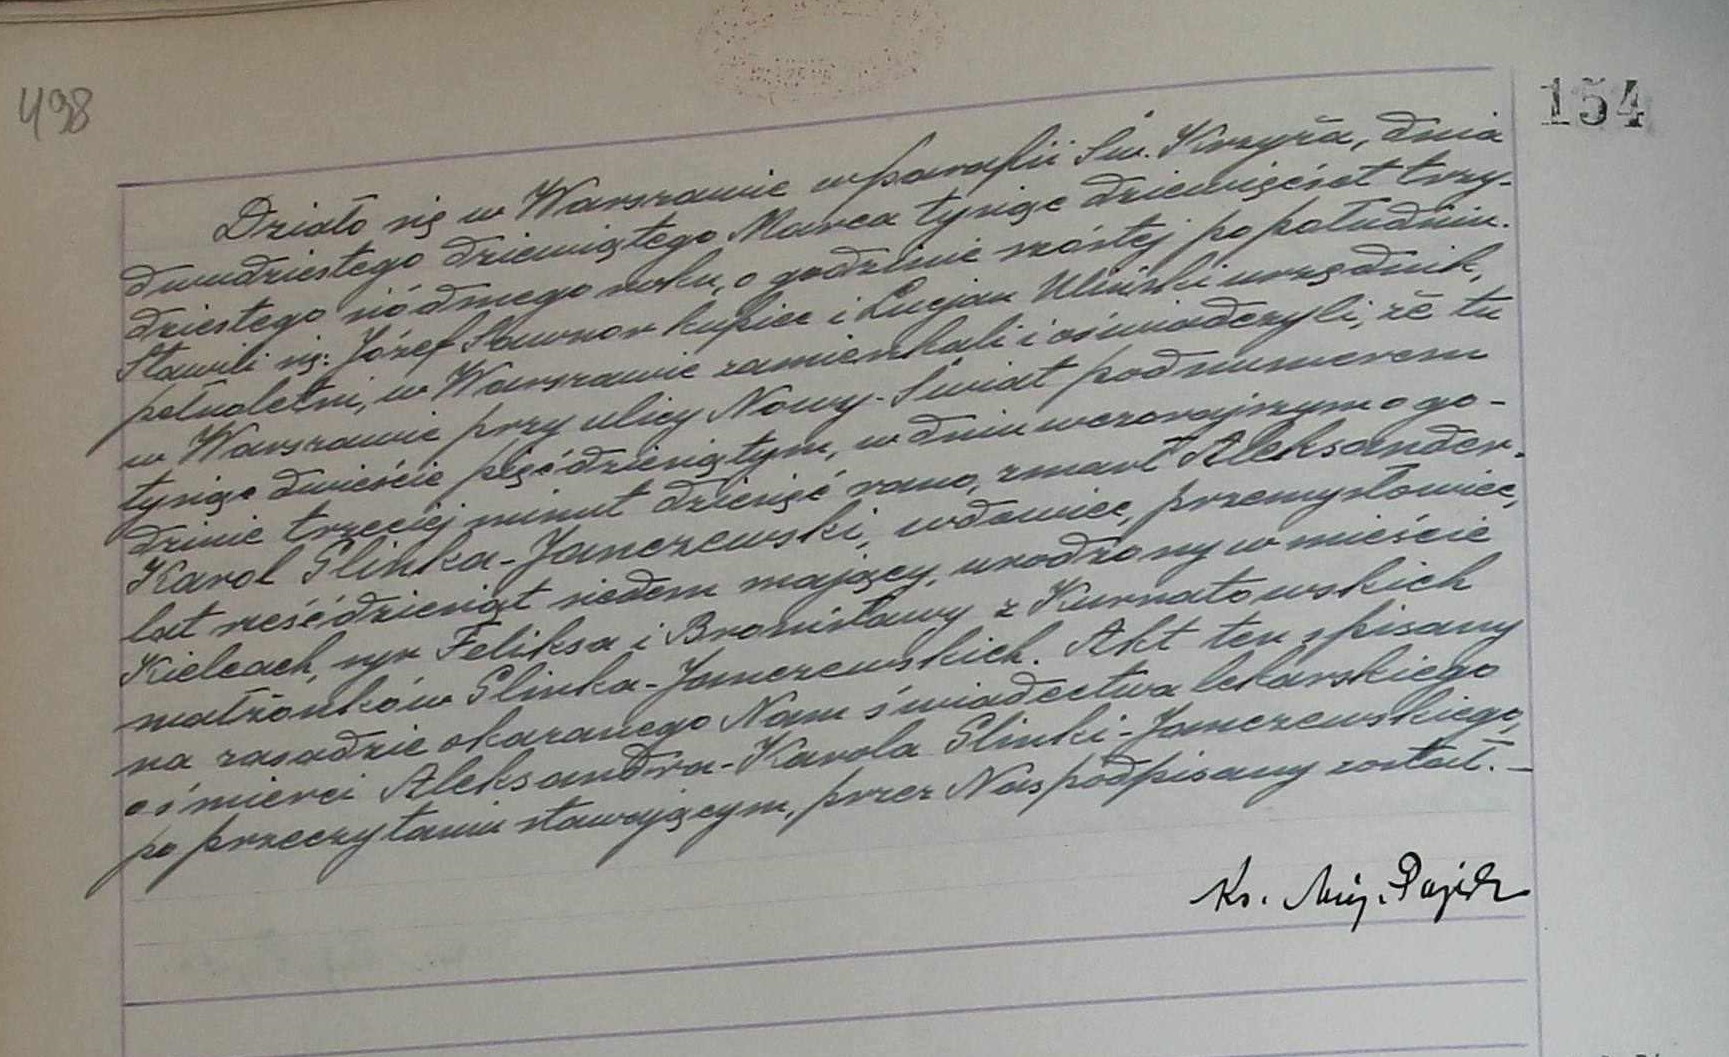 498
154
Działo się w Warszawie w parafii Św. Krzyża, dnia
dwudziestego dziewiątego Marca tysiąc dziewięćset trzy-
dziestego siódmego roku, o godzinie szóstej po południu.
Stawili się: Józef kupiec i Lucjan Uliński urzędnik,
pełnoletni, w Warszawie zamieszkali i oświadczyli, że tu
w Warszawie przy ulicy Nowy-Świat pod numerem
tysiąc dwieście pięćdziesiątym, w dniu wczorajszym o go-
dzinie trzeciej minut dziesięć rano, zmarł Aleksander-
Karol Glinka-Janczewski, wdowiec, przemysłowiec,
lat sześćdziesiąt siedem mający, urodzony w mieście
Kielcach, syn Feliksa i Bronisławy z Kurnatowskich
małżonków Glinka-Janczewskich. Akt ten spisany
na zasadzie okazanego Nam świadectwa lekarskiego
o śmierci Aleksandra-Karola Glinki-Janczewskiego,
po przeczytaniu stawającym, przez Nas podpisany został. —
Ks.